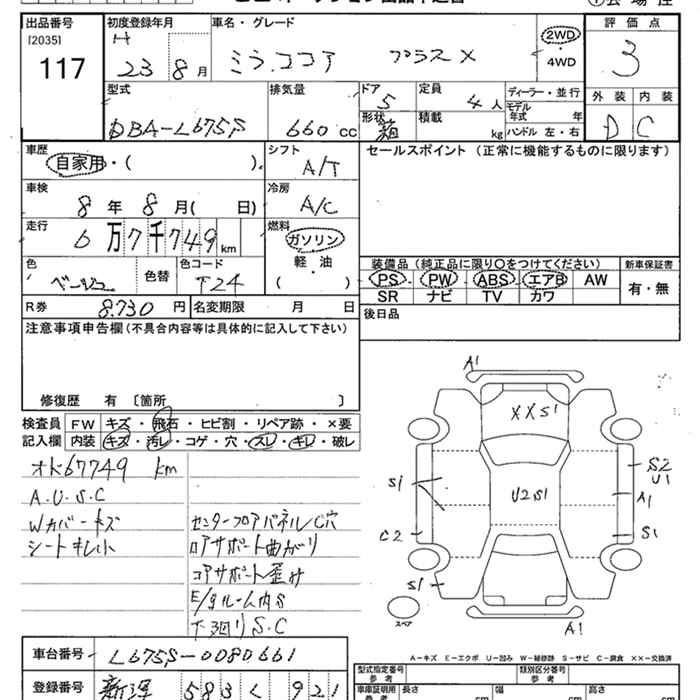 出品番号 初度登録年月 車名・グレード 評価点
[2035] H
117 23 8月 ミラ.ココア プラスX 2WD・4WD 3
型式 排気量 ドア 定員 ディーラー・並行 外装 内装
DBA-L675S 660 cc 5 4人 モデル年式 年 D C
形状 箱 積載 kg ハンドル 左・右
車歴 シフト セールスポイント (正常に機能するものに限ります)
自家用・( ). A/T
車検 冷房
8年 8月( 日) A/C
走行 燃料
6万7千749km ガソリン
軽・油
( )
色 色替 色コード 装備品 (純正品に限り○をつけてください) 新車保証書
ベージュ T24 PS PW ABS エアB AW 有・無
SR ナビ TV カワ
R券 8.730円 名変期限 月 日 後日品
注意事項申告欄(不具合内容等は具体的に記入して下さい)
修復歴 有 〔箇所 〕
検査員 FW キズ・飛石・ヒビ割・リペア跡・×要
記入欄 内装 キズ・汚レ・コゲ・穴・スレ・キレ・破レ
オド67749 km
A.U.S.C
Wカバーキズ センターフロアパネル/C穴
シートキレ小 ロアサポート曲がり
コアサポート歪み
E/gルーム内S
下廻りS.C
A1
XXS1
S1 U2S1 S2
U1
A1
C2 S1
S1
スペア A1
A-キズ E-エクボ U-凹み W-補修跡 S-サビ C-腐食 XX-交換済
車台番号 L675S-0080661
型式指定番号 類別区分番号
参考 参考
登録番号 583 く 921
車庫証明用 長さ 幅 高さ
参考 cm cm cm